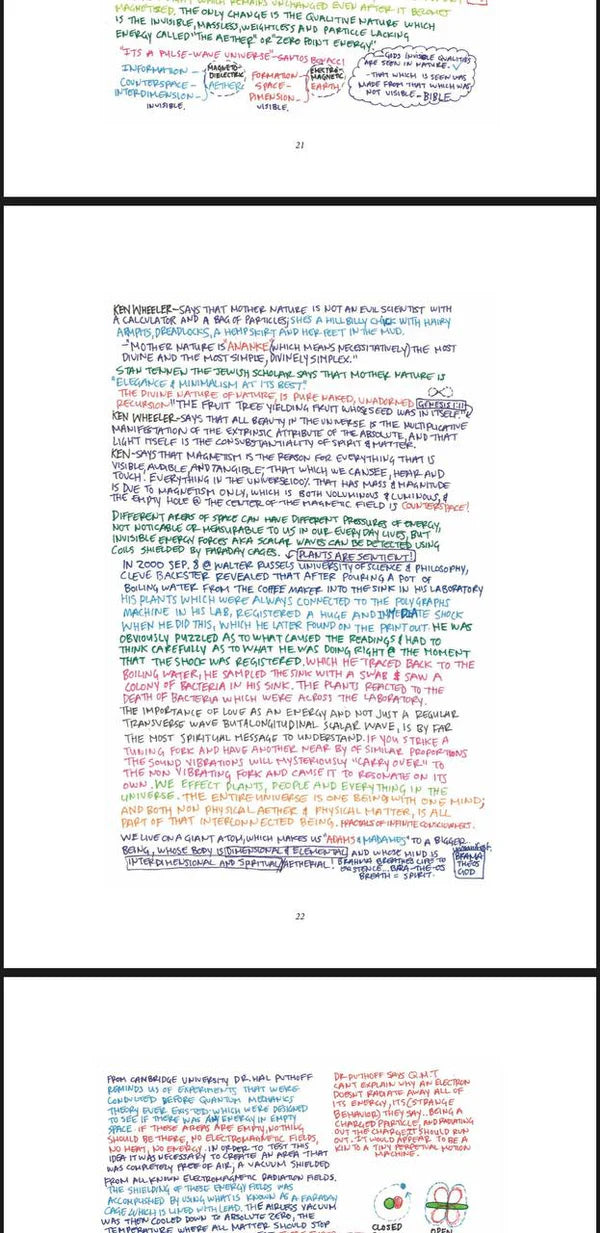 MAGNETISED. THE ONLY CHANGE IS THE QUALITIVE NATURE WHICH
IS THE INVISIBLE, MASSLESS, WEIGHTLESS AND PARTICLE LACKING
ENERGY CALLED "THE AETHER" OR "ZERO POINT ENERGY."
"ITS A PULSE-WAVE UNIVERSE"-SANTOS BONACCI
INFORMATION-
COUNTERSPACE-
INTERDIMENSION-
INVISIBLE.
MAGNETO-
DIELECTRIC
AETHER
FORMATION-
SPACE-
DIMENSION-
VISIBLE.
ELECTRO-
MAGNETIC
EARTH
GODS INVISIBLE QUALITIES
ARE SEEN IN NATURE.
-THAT WHICH IS SEEN WAS
MADE FROM THAT WHICH WAS
NOT VISIBLE-BIBLE
21
KEN WHEELER-SAYS THAT MOTHER NATURE IS NOT AN EVIL SCIENTIST WITH
A CALCULATOR AND A BAG OF PARTICLES; SHES A HILLBILLY CHICK WITH HAIRY
ARMPITS, DREADLOCKS, A HEMP SKIRT AND HER FEET IN THE MUD.
-"MOTHER NATURE IS "ANANKE" (WHICH MEANS NECESSITATIVELY) THE MOST
DIVINE AND THE MOST SIMPLE, DIVINELY SIMPLEX."
STAN TENNEN THE JEWISH SCHOLAR SAYS THAT MOTHER NATURE IS
"ELEGANCE & MINIMALISM AT ITS BEST."
THE DIVINE NATURE OF NATURE, IS PURE NAKED, UNADORNED GENESIS 1:11
RECURSION "THE FRUIT TREE YIELDING FRUIT WHOSE SEED WAS IN ITSELF."
KEN WHEELER-SAYS THAT ALL BEAUTY IN THE UNIVERSE IS THE MULTIPLICATIVE
MANIFESTATION OF THE EXTRINSIC ATTRIBUTE OF THE ABSOLUTE, AND THAT
LIGHT ITSELF IS THE CONSUBSTANTIALITY OF SPIRIT & MATTER.
KEN-SAYS THAT MAGNETISM IS THE REASON FOR EVERYTHING THAT IS
VISIBLE, AUDIBLE, AND TANGIBLE; THAT WHICH WE CAN SEE, HEAR AND
TOUCH. EVERYTHING IN THE UNIVERSE 100% THAT HAS MASS & MAGNITUDE
IS DUE TO MAGNETISM ONLY, WHICH IS BOTH VOLUMINOUS & LUMINOUS, &
THE EMPTY HOLE @ THE CENTER OF THE MAGNETIC FIELD IS COUNTERSPACE!
DIFFERENT AREAS OF SPACE CAN HAVE DIFFERENT PRESSURES OF ENERGY,
NOT NOTICABLE OR MEASURABLE TO US IN OUR EVERY DAY LIVES, BUT
INVISIBLE ENERGY FORCES AKA SCALAR WAVES CAN BE DETECTED USING
COILS SHIELDED BY FARADAY CAGES. PLANTS ARE SENTIENT!
IN 2000 SEP. 8 @ WALTER RUSSELS UNIVERSITY OF SCIENCE & PHILOSOPHY,
CLEVE BACKSTER REVEALED THAT AFTER POURING A POT OF
BOILING WATER FROM THE COFFEE MAKER INTO THE SINK IN HIS LABORATORY
HIS PLANTS WHICH WERE ALWAYS CONNECTED TO THE POLYGRAPHS
MACHINE IN HIS LAB, REGISTERED A HUGE AND IMMEDIATE SHOCK
WHEN HE DID THIS, WHICH HE LATER FOUND ON THE PRINT OUT. HE WAS
OBVIOUSLY PUZZLED AS TO WHAT CAUSED THE READINGS & HAD TO
THINK CAREFULLY AS TO WHAT HE WAS DOING RIGHT @ THE MOMENT
THAT THE SHOCK WAS REGISTERED. WHICH HE TRACED BACK TO THE
BOILING WATER; HE SAMPLED THE SINK WITH A SWAB & SAW A
COLONY OF BACTERIA IN HIS SINK. THE PLANTS REACTED TO THE
DEATH OF BACTERIA WHICH WERE ACROSS THE LABORATORY.
THE IMPORTANCE OF LOVE AS AN ENERGY AND NOT JUST A REGULAR
TRANSVERSE WAVE BUT A LONGITUDINAL SCALAR WAVE, IS BY FAR
THE MOST SPIRITUAL MESSAGE TO UNDERSTAND. IF YOU STRIKE A
TUNING FORK AND HAVE ANOTHER NEAR BY OF SIMILAR PROPORTIONS
THE SOUND VIBRATIONS WILL MYSTERIOUSLY "CARRY OVER" TO
THE NON VIBRATING FORK AND CAUSE IT TO RESONATE ON ITS
OWN. WE EFFECT PLANTS, PEOPLE AND EVERYTHING IN THE
UNIVERSE. THE ENTIRE UNIVERSE IS ONE BEING WITH ONE MIND;
AND BOTH NON PHYSICAL AETHER & PHYSICAL MATTER, IS ALL
PART OF THAT INTERCONNECTED BEING. FRACTALS OF INFINITE CONSCIOUSNESS.
WE LIVE ON A GIANT ATOM, WHICH MAKES US "ADAMS & MADAMES" TO A BIGGER
BEING, WHOSE BODY IS DIMENSIONAL & ELEMENTAL AND WHOSE MIND IS
INTERDIMENSIONAL AND SPIRITUAL/AETHERIAL! BRAHMA BREATHES LIFE TO
EXISTENCE... BRA-THE-OS
BREATH = SPIRIT.
BRAMA
THEOS
GOD
22
FROM CAMBRIDGE UNIVERSITY DR. HAL PUTHOFF
REMINDS US OF EXPERIMENTS THAT WERE
CONDUTED BEFORE QUANTUM MECHANICS
THEORY EVER EXISTED; WHICH WERE DESIGNED
TO SEE IF THERE WAS ANY ENERGY IN EMPTY
SPACE. IF THESE AREAS ARE EMPTY, NOTHING
SHOULD BE THERE, NO ELECTROMAGNETIC FIELDS,
NO HEAT, NO ENERGY. IN ORDER TO TEST THIS
IDEA IT WAS NECESSARY TO CREATE AN AREA THAT
WAS COMPLETELY FREE OF AIR, A VACUUM SHIELDED
FROM ALL KNOWN ELECTROMAGNETIC RADIATION FIELDS.
THE SHIELDING OF THESE ENERGY FIELDS WAS
ACCOMPLISHED BY USING WHAT IS KNOWN AS A FARADAY
CAGE WHICH IS LINED WITH LEAD. THE AIRLESS VACUUM
WAS THEN COOLED DOWN TO ABSOLUTE ZERO, THE
TEMPERATURE WHERE ALL MATTER SHOULD STOP
DR PUTHOFF SAYS Q.M.T
CANT EXPLAIN WHY AN ELECTRON
DOESNT RADIATE AWAY ALL OF
ITS ENERGY, ITS (STRANGE
BEHAVIOR) THEY SAY. BEING A
CHARGED PARTICLE, AND RADIATING
OUT THE CHARGE IT SHOULD RUN
OUT. IT WOULD APPEAR TO BE A
KIN TO A TINY PERPETUAL MOTION
MACHINE.
CLOSED
OPEN